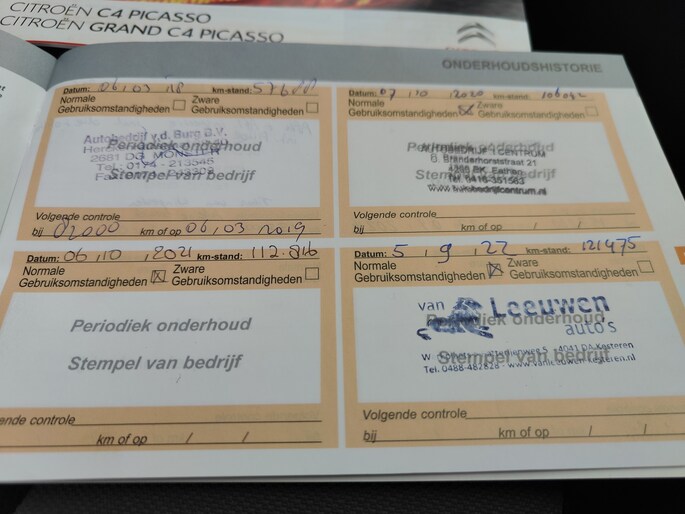 CITROËN C4 PICASSO
CITROËN GRAND C4 PICASSO
ONDERHOUDSHISTORIE
Datum: 06, 03, 18 km-stand:
Normale Gebruiksomstandigheden
Zware Gebruiksomstandigheden
Autobedrijf v.d. Burg B.V.
Periodiek onderhoud
2681 DG MONSTER
Tel.: 0174 - 213545
Stempel van bedrijf
Volgende controle
bij 82000 km of op 06/03 2019
Datum: 07, 10, 2020 km-stand:
Normale Gebruiksomstandigheden
Zware Gebruiksomstandigheden
Periodiek onderhoud
Branderhorststraat 21
Stempel van bedrijf
Volgende controle
bij km of op / /
Datum: 06, 10, 2021 km-stand: 112.816
Normale Gebruiksomstandigheden
Zware Gebruiksomstandigheden
Periodiek onderhoud
Stempel van bedrijf
Volgende controle
km of op / /
Datum: 5, 9, 22 km-stand: 121475
Normale Gebruiksomstandigheden
Zware Gebruiksomstandigheden
van Leeuwen
Periodiek onderhoud
auto's
Stempel van bedrijf
4041 DA Kesteren
Tel. 0488-482828 - www.vanleeuwen-kesteren.nl
Volgende controle
bij km of op / /